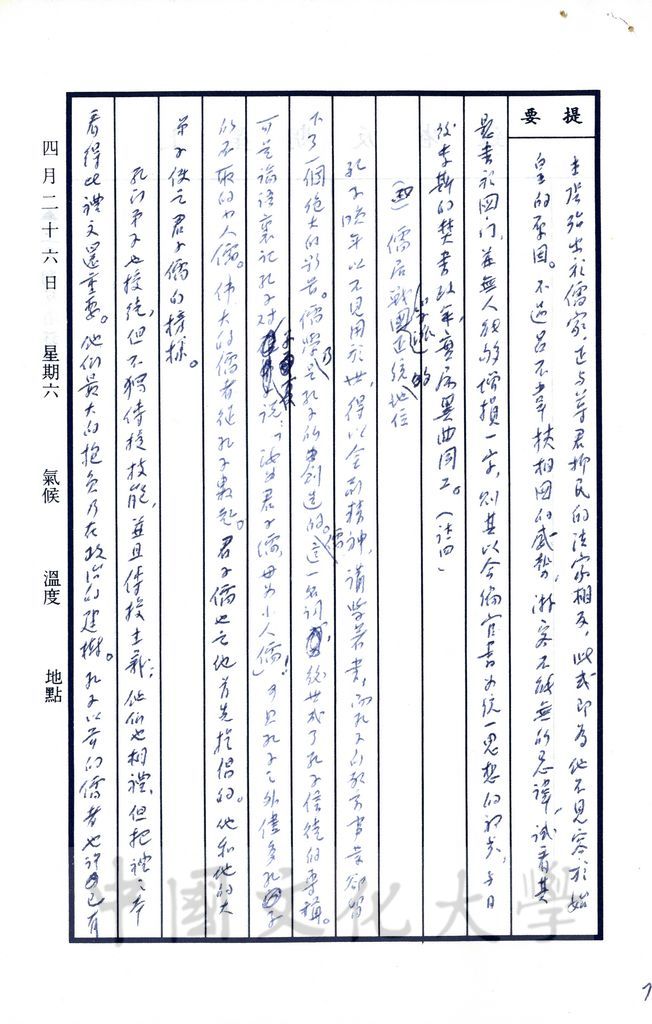 提要
主張殆出於儒家,正与尊君抑民的法家相反,此或即為他不見容於始
皇的原因。不過呂不韋挾相國的威勢,游客不能無所忌諱,試看其
懸書於國門,並無人能夠增損一字,則其以金編官書为統一思想的初意,与日
後李斯的焚書政策,實屬異曲同工。(註四)
(四)儒居戰國学派的正統地位
孔子晚年以不見用於世,得以全副精神,講學著書,而孔子的教育事業卻留
下了一個絕大的影响。儒學乃是孔子所創造的。「儒」這一名詞,後世成了孔子信徒的專稱。
可是論語裏記孔子对子夏說:「汝為君子儒,毋为小人儒」!可見孔子之外儘多孔子
所不取的小人儒。偉大的儒者從孔子數起。君子儒也是他首先提倡的。他和他的大
弟子便是君子儒的榜樣。
孔门弟子也授徒,但不獨傳授技能,並且傳授主義;他們也相禮,但把禮之本
看得比禮文還重要。他們最大的抱負乃在政治的建樹。孔子以前的儒者也許已有
四月二十六日 星期六 氣候 溫度 地點
中國文化大學
7